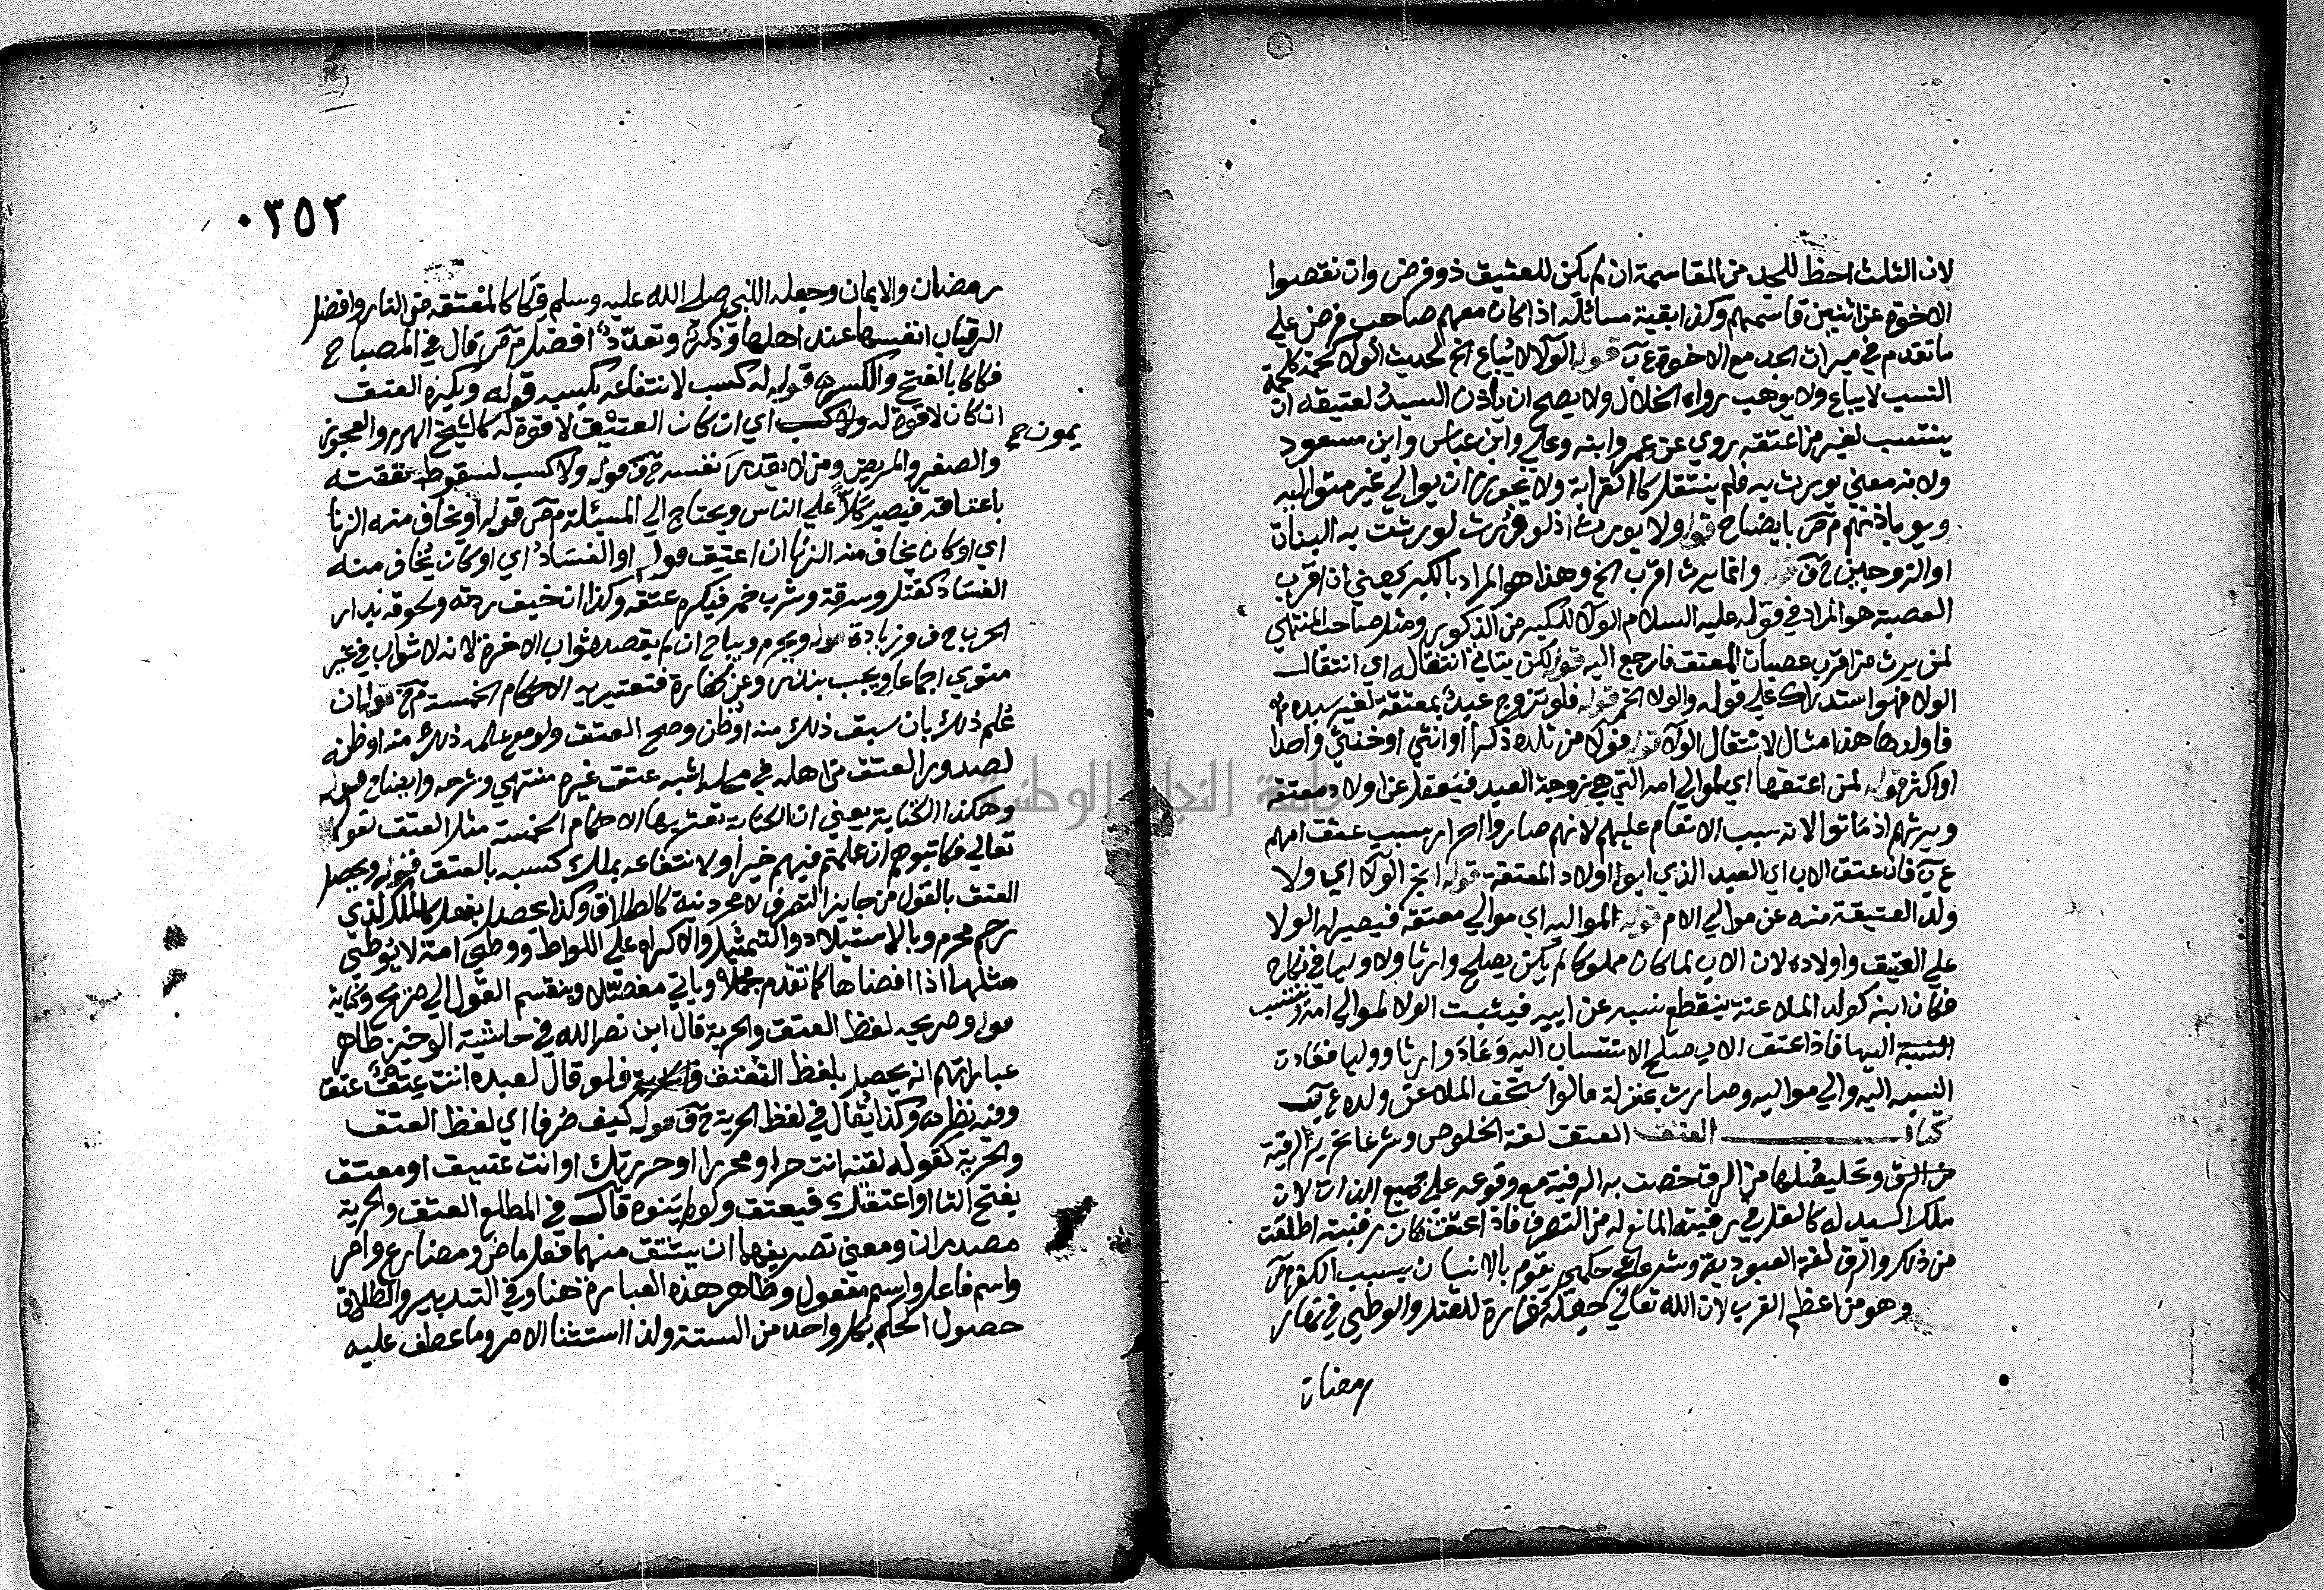 لان الثلث احظ للجد من المقاسمة ان لم يكن للعتيق ذو فرض وان نقصوا
الاخوة عن اثنين قاسمهم وكذا بقية مسائله اذا كان معهم صاحب فرض علي
ما تقدم في ميراث الجد مع الاخوة ع ن قوله الولا لا يباع الخ لحديث الولا لحمة كلحمة
النسب لا يباع ولا يوهب رواه الخلال ولا يصح ان ياذن السيد لعتيقه ان
ينتسب لغير من اعتقه روي عن عمر وابنه وعلي وابن عباس وابن مسعود
ولانه معني يورث به فلم ينتقل كالقرابة ولا يجوز ان يوالي غير مواليه
ولو باذنهم م ص بايضاح قوله ولا يورث اذ لو ورث لورثت به البنات
او الزوجين ح ف قوله وانما يرث اقرب الخ وهذا هو المراد بالكبر يعني ان اقرب
العصبة هو المراد في قوله عليه السلام الولا للكبير من الذكور ومثله صاحب المنتهي
لمن يرث من اقرب عصبات المعتق فارجع اليه قوله لكن يتاتي انتقاله اي انتقال
الولا فهو استدراك علي قوله والولا الخ قوله فلو تزوج عبد بمعتقة لغير سيده
فاولدها هذا مثال لانتقال الولا قوله فولا من تلده ذكرا او انثي او خنثي واحدا
او اكثر قوله لمن اعتقها اي لموالي امه التي هي زوجة العبد فيعقل عن اولاد معتقته
ويرثهم اذ ماتوا لانه سبب الانعام عليهم لانهم صاروا احرار بسبب عتق امهم
ع ن فان عتق الاب اي العبد الذي ابوا اولاد المعتقة قوله انجر الولا اي ولا
ولد العتيقة منه عن موالي الام قوله الي مواليه اي موالي معتقه فيصير له الولا
علي العتيق واولاده لان الاب لما كان مملوكا لم يكن يصلح وارثا ولا وليا في نكاح
فكان ابنه كولد الملاعنة ينقطع نسبه عن ابيه فيثبت الولا لموالي امه وينتسب
النسبة اليها فاذا عتق الاب صلح الانتساب اليه وعاد وارثا ووليا فعادت
النسبة اليه والي مواليه وصارت بمنزلة ما لو استلحق الملاعن ولده ع ن
كتاب العتق العتق لغة الخلوص وشرعا تحرير الرقبة
من الرق وتخليصها من الرق خصت به الرقبة مع وقوعه علي جميع الذات لان
ملك السيد له كالغل في رقبته المانع له من التصرف فاذا عتق كان رقبته اطلقت
من ذلك والرق لغة العبودية وشرعا عجز حكمي يقوم بالانسان بسبب الكفر م ص
وهو من اعظم القرب لان الله تعالي جعله كفارة للقتل والوطي في نهار
رمضان
٠٣٥٢
رمضان والايمان وجعله النبي صلي الله عليه وسلم فكاكا لمعتقه من النار وافضل
الرقاب انفسها عند اهلها وذكر وتعدد افضل م ص قال في المصباح
فكاكا بالفتح والكسر قوله له كسب لانتفاعه بكسبه قوله ويكره العتق
ان كان لا قوة له ولا كسب اي ان كان العتيق لا قوة له كالشيخ الهرم والعجوز
والصغير والمريض ومن لا يقدر نفسه ح ف قوله ولا كسب لسقوط نفقته
يمون ح
باعتاقه فيصير كلا علي الناس ويحتاج الي المسئلة م ص قوله او يخاف منه الزنا
اي او كان يخاف منه الزنا ان اعتيق قوله او الفساد اي او كان يخاف منه
الفساد كقتل وسرقة وشرب خمر فيكره عتقه وكذا ان خيف ردته ولحوقه بدار
الحرب ح ف وزيادة قوله ويحرم ويباح ان لم يقصد ثواب الاخرة لانه لا ثواب في غير
منوي اجماعا ويجب بنذر وعن كفارة فتعتريه الاحكام الخمسة م خ قوله ان
علم ذلك بان سبق ذلك منه او ظن وصح العتق ولو مع علمه ذلك منه او ظنه
لصدور العتق من اهله في محله اشبه عتق غيره منتهي وشرحه وايضاح قوله
وهكذا الكتابة يعني ان الكتابة تعتريها الاحكام الخمسة مثل العتق لقوله
تعالي فكاتبوهم ان علمتم فيهم خيرا ولانتفاعه بملك كسبه بالعتق قوله ويحصل
العتق بالقول من جايز التصرف لا بمجرد نية كالطلاق وكذا يحصل بفعل كالملك لذي
رحم محرم وبالاستيلاد والتمثيل والاكراه علي اللواط ووطي امة لا يوطي
مثلها اذا افضاها كما تقدم مجملا وياتي مفصلا وينقسم القول الي صريح وكناية
قوله وصريحه لفظ العتق والحرية قال ابن نصر الله في حاشية الوجيز ظاهر
عباراتهم انه يحصل بلفظ العتق والحرية فلو قال لعبده انت عتق عتق
وفيه نظر وكذا يقال في لفظ الحرية ح ف قوله كيف صرفا اي لفظ العتق
والحرية كقوله لقنه انت حر او محرر او حررتك او انت عتيق او معتق
بفتح التا او اعتقتك فيعتق ولو لم ينوه قال في المطلع العتق والحرية
مصدران ومعني تصريفهما ان يشتق منهما فعل ماض ومضارع وامر
واسم فاعل واسم مفعول وظاهر هذه العبارة هنا وفي التدبير والطلاق
حصول الحكم بكل واحد من الستة ولذا استثنا الامر وما عطف عليه